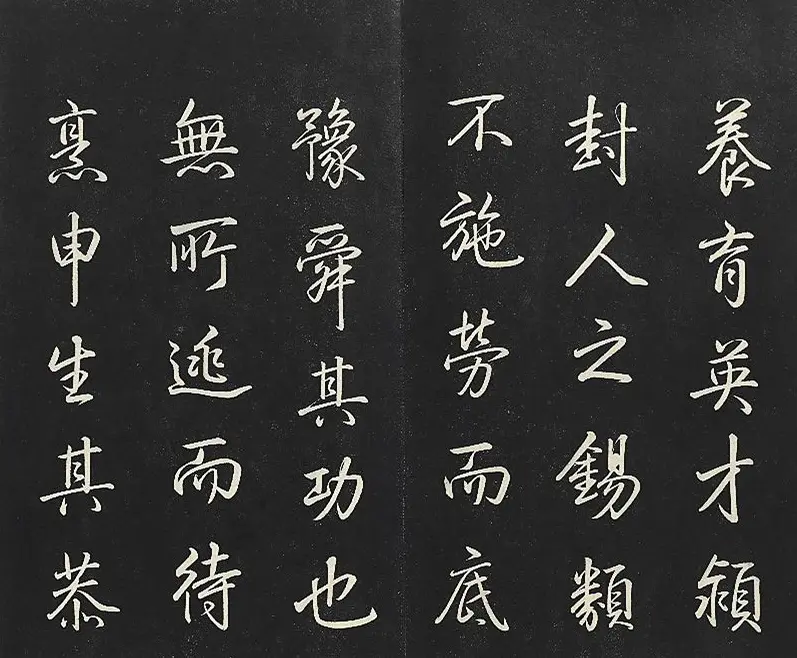 養育英才潁
封人之錫類
不施勞而底
豫舜其功也
無所逃而待
烹申生其恭